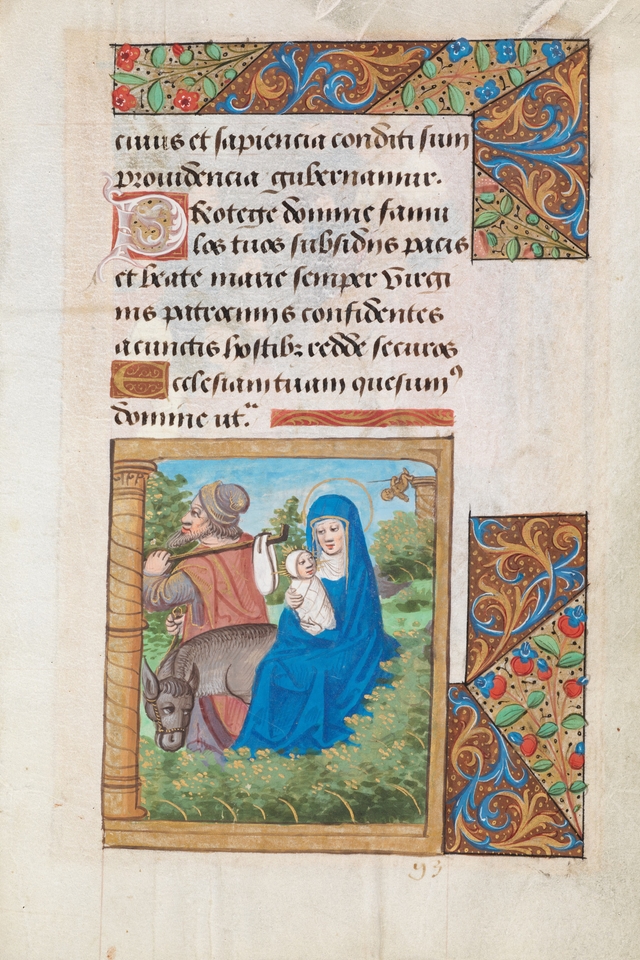 cuius et sapiencia conditi sum
prouidencia gubernamur.
Protege domine famu
los tuos subsidiis pacis
et beate marie semper virgi
nis patrociniis confidentes
a cunctis hostibꝫ redde securos
Ecclesiam tuam quesumꝰ
domine ut.
93